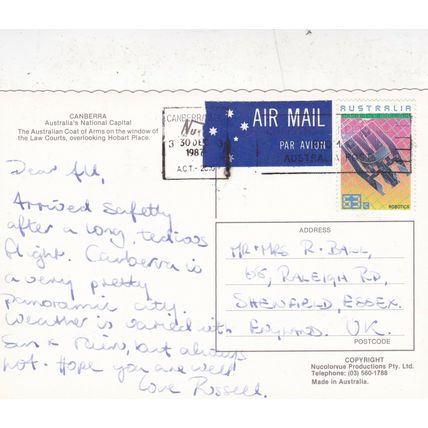 CANBERRA
Australia's National Capital
The Australian Coat of Arms on the window of
the Law Courts, overlooking Hobart Place.
CANBERRA
30 DEC
1987
A.C.T.
AIR MAIL
PAR AVION
AUSTRALIA
AUSTRALIA
53c
ROBOTICS
Dear All,
Arrived safetly
after a long, tedious
flight. Canberra is
a very pretty
panoramic city.
Weather is varied with
Sun & Rain, but always
hot. Hope you are well
Love Russell.
ADDRESS
MR + MRS R. BALL,
66, RALEIGH RD,
SHENFIELD, ESSEX.
ENGLAND. UK.
POSTCODE
COPYRIGHT
Nucolorvue Productions Pty. Ltd.
Telephone: (03) 560-1768
Made in Australia.